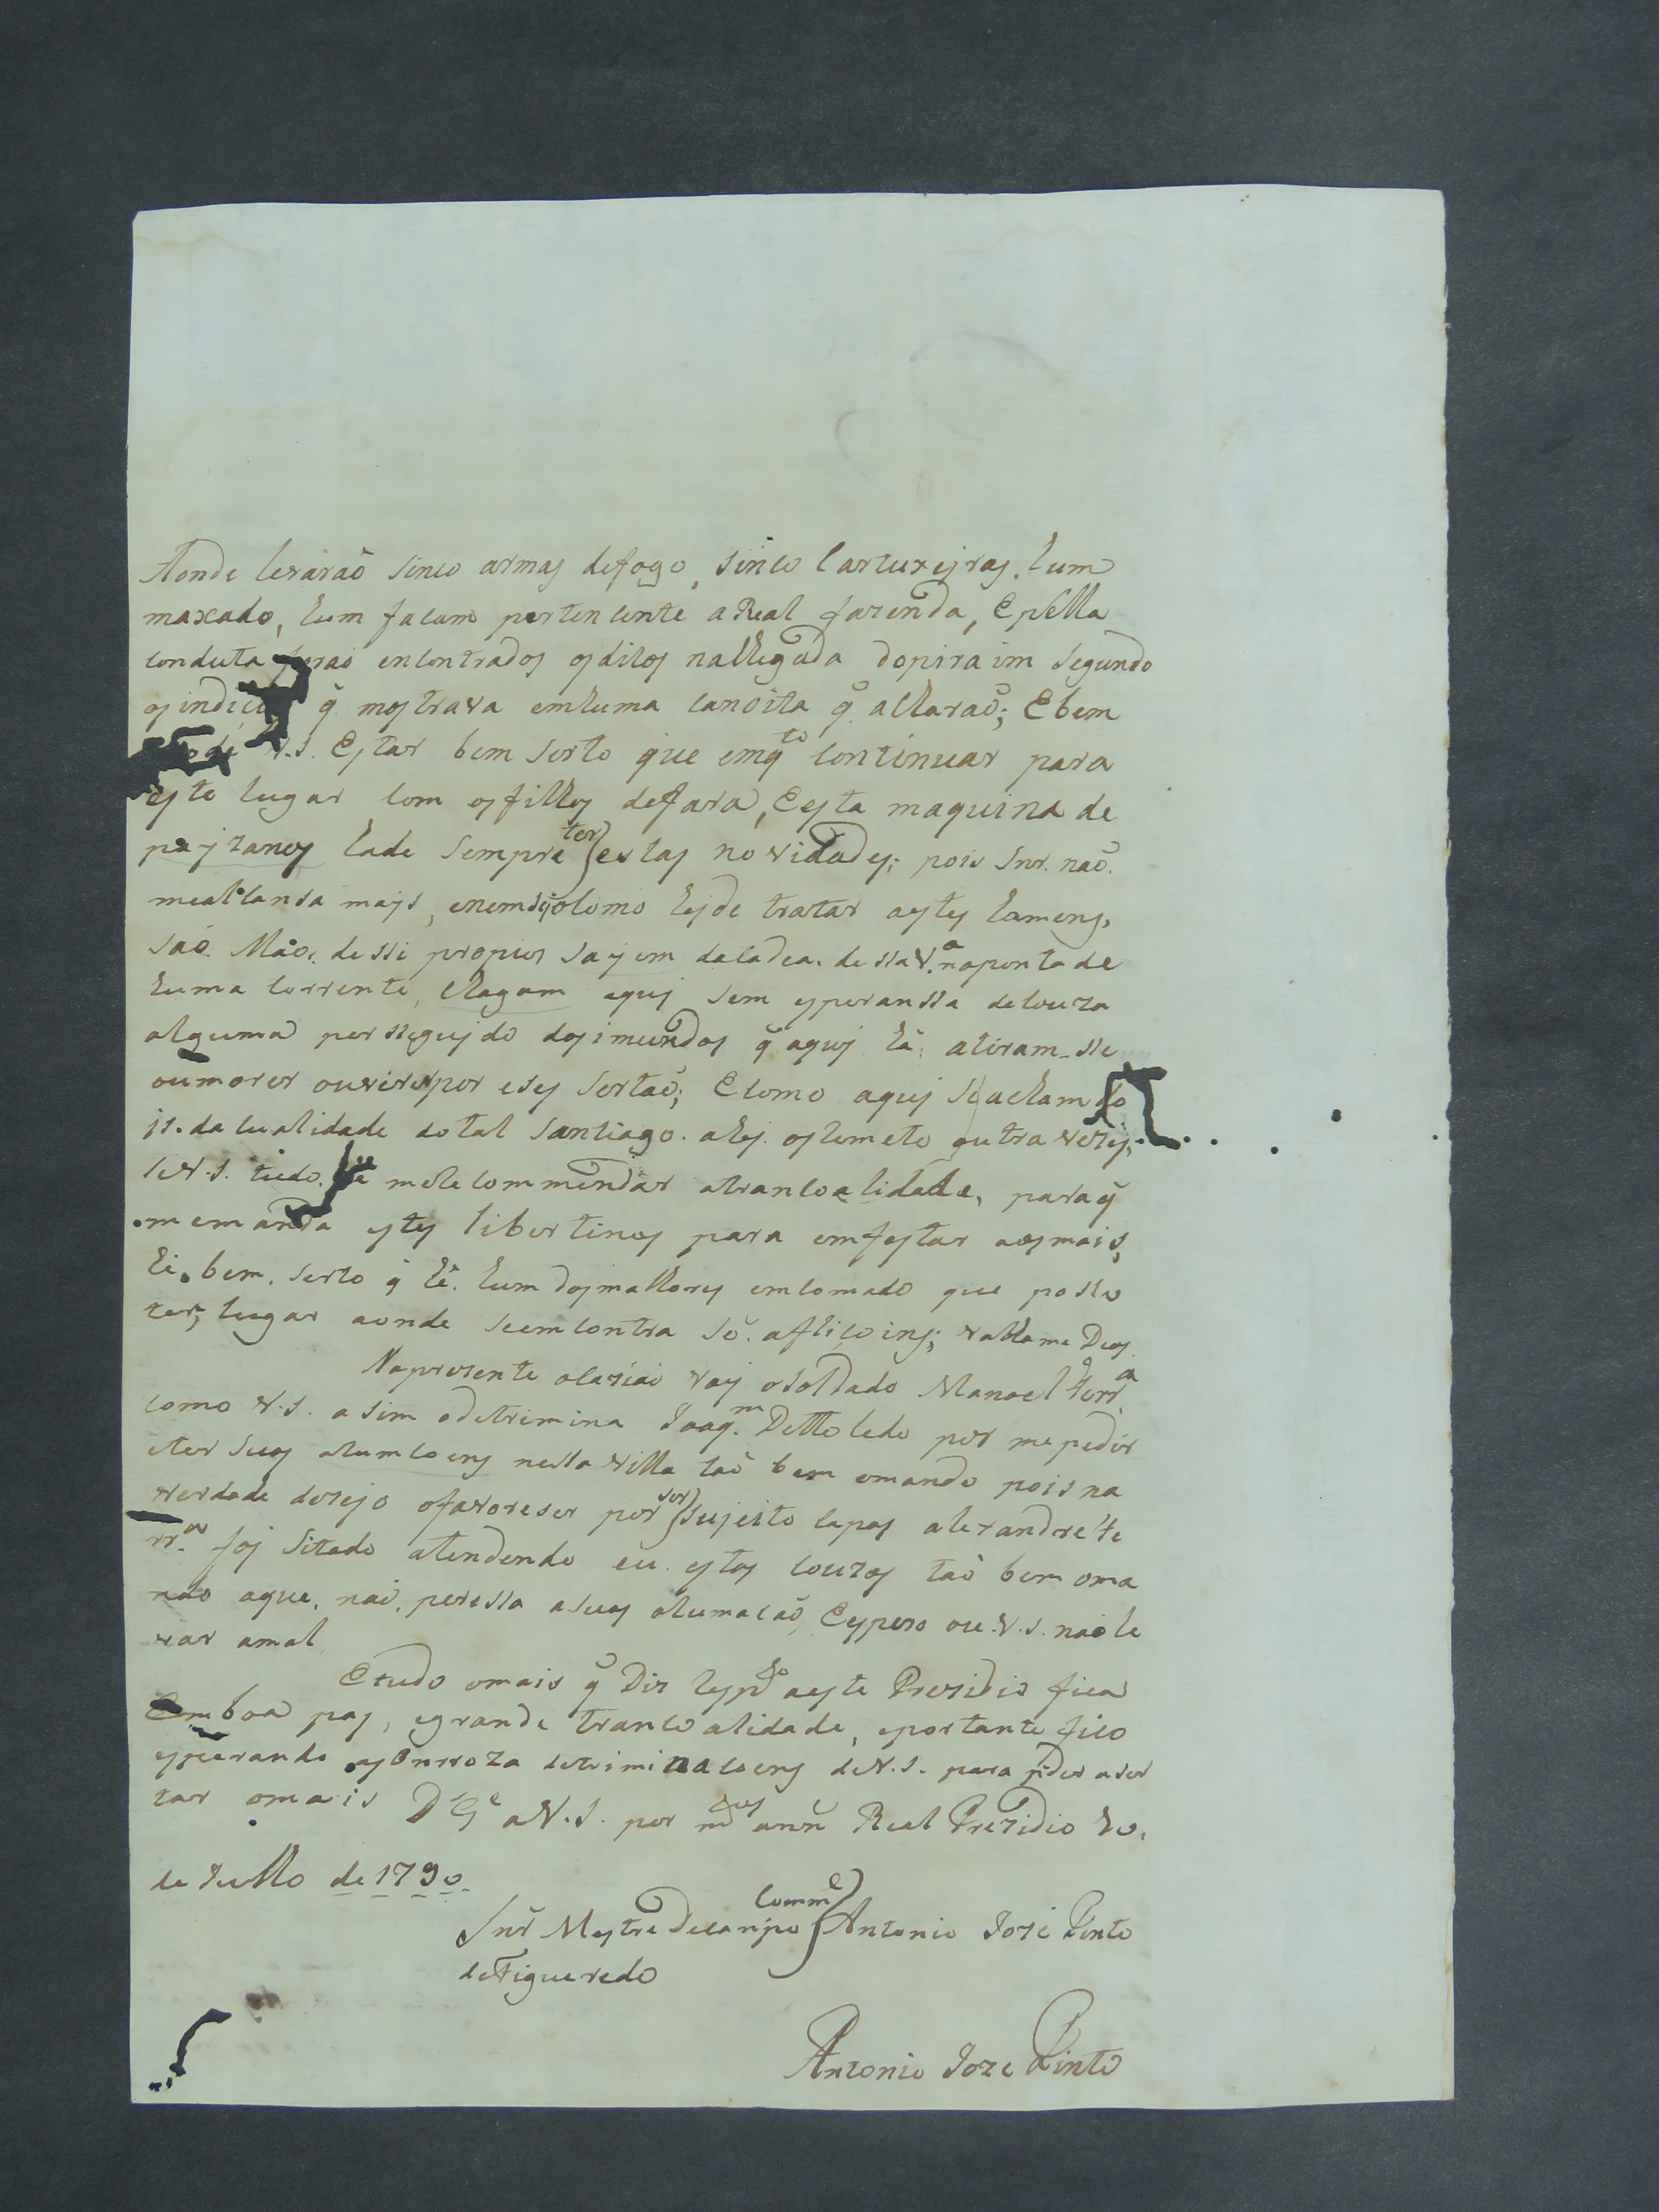 Aonde levaraõ sinco armas defogo, sinco Cartuxejras, hum
maxado, hum facam pertencente a Real fazenda, E pella
conduta foraõ encontrados osditos nachegada dopiraim segundo
os indicios q̃ mostrava emhuma canoita q̃ acharaõ; E bem
pode V.S. Estar bem serto que emq.to continuar para
este lugar com osfilhos defara, E esta maquina de
pajzanos hade sempre ter estas novidades; pois Snr. naõ
mealcansa majs, enemsejocomo hejde tratar aestes homens,
saõ Máos. dessi propios sayem dacadea. dessaV.a naponta de
huma corrente, chegam aquj sem esperanssa decouza
alguma perssegujdo dosimundos q̃ aquj hê. atiram-sse
oumorer ouviverpor eses sertaõ; E como aquj seacham do
is. da cualidade do tal Santiago. ahj. os cometo outra vez,
V.S. tudo. hê mecommendar atrancoalidade, paraq̃
memanda estes libertinos para emfestar aosmais,
hé bem. serto q̃ hê. hum dosmalhores emcomado que posso
ter, lugar aonde seemcontra só. afliçoins; valhame Deos
Naprezente ocaziaõ vaj osoldado Manoel Ferr.a
como V.S. asim odetrimina Joaq.m Dettoledo por mepedir
eter suas arumcoens nessa villa taõ bem omando pois na
verdade dezejo ofavoreser por ser sujeito capas alexandre Fe
rr.a foj Sitado atendendo eu. estas couzas taõ bem oma
ndo aque. naõ. peressa asuas arumacaõ, E espero que V.S. naõ le
var amal
E tudo omais q̃ Diz resp.to aeste Prezidio fica
Em boa pas, egrande trancoalidade, eportante fico
esperando asOnrroza detriminacoens deV.S. para poder aser
tar omais D.s G.e aV.S. por m.tos anñ Real Prezidio 20.
de Julho de 1790
Snr̃ Mestre Decampo Comm.e Antonio Jozé Pinto
deFigueredo
Antonio Joze Pinto